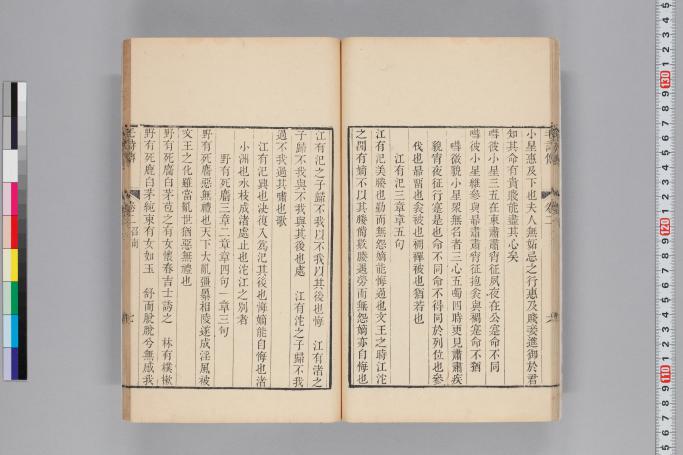 小星惠及下也夫人無妬忌之行惠及賤妾進御於君
知其命有貴賤能盡其心矣
嘒彼小星三五在東肅肅宵征夙夜在公寔命不同
嘒彼小星維參與昴肅肅宵征抱衾與裯寔命不猶
嘒微貌小星眾無名者三心五噣四時更見肅肅疾
貌宵夜征行寔是也命不同命不得同於列位也參
伐也昴留也衾被也裯襌被也猶若也
江有汜三章章五句
江有汜美媵也勤而無怨嫡能悔過也文王之時江沱
之閒有嫡不以其媵備數媵遇勞而無怨嫡亦自悔也
江有汜之子歸不我以不我以其後也悔　江有渚之
子歸不我與不我與其後也處　江有沱之子歸不我
過不我過其嘯也歌
江有汜興也決復入為汜其後也悔嫡能自悔也渚
小洲也水枝成渚處止也沱江之別者
野有死麕三章二章章四句一章三句
野有死麕惡無禮也天下大亂彊暴相陵遂成淫風被
文王之化雖當亂世猶惡無禮也
野有死麕白茅苞之有女懷春吉士誘之　林有樸樕
野有死鹿白茅純束有女如玉　舒而脫脫兮無感我